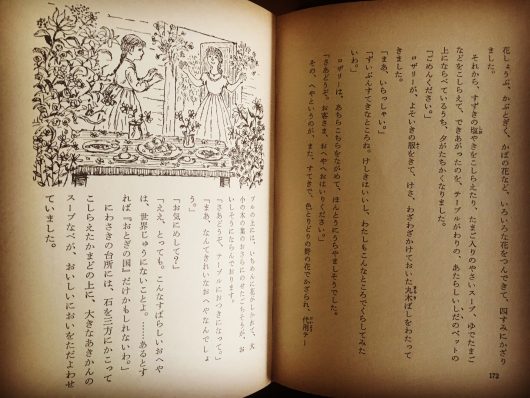 花しょうぶ、かぶとぎく、かばの花など、いろいろな花をつんできて、四すみにかざり
ました。
それから、すずきの塩やきをこしらえたり、たまご入りのやさいスープ、ゆでたまご
などをこしらえて、できあがったのを、テーブルがわりの、あたらしいしだのベットの
上にならべているうち、夕がたちかくなりました。
「ごめんください。」
ロザリーが、よそいきの服をきて、けさ、わざわざかけておいた丸木ばしをわたって
きました。
「まあ、いらっしゃい。」
「ずいぶんすてきなところね。けしきはいいし、わたしもこんなところでくらしてみた
いわ。」
ロザリーは、あちらこちらをながめて、ほんとうにうらやましそうでした。
「さあどうぞ。お客さま、おへやへおはいりください。」
その、へやというのが、また、すてきで、色とりどりの野の花でかざられ、代用テー
172
ブルの上には、いちめんに花がしかれて、大
小の木の葉のおさらにのせたごちそうが、お
いしそうにならんでおります。
「さあどうぞ、テーブルにおつきになって。」
「まあ、なんてきれいなおへやなんでしょ
う。」
「お気にめして?」
「ええ、とっても。こんなすばらしいおへや
は、世界じゅうにないことよ。……あるとす
れば『おとぎの国』だけかもしれないわ。」
にわさきの台所には、石を三方にかこって
こしらえたかまどの上に、大きなあきかんの
スープなべが、おいしいにおいをただよわせ
ていました。